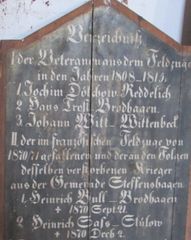 Verzeichnis
I der Veteranen aus dem Feldzuge
in den Jahren 1808-1815.
1 Jochim Dölschow Reddelich
2 Hans Tress Brodhagen.
3 Johann Witt - Wittenbeck
II der im französischen Feldzuge von
1870/71 gefallenen und der an den Folgen
desselben verstorbenen Krieger
aus der Gemeinde Steffenshagen.
1 Heinrich Bull - Brodhagen
+ 1870 Sept. 21
2 Heinrich Sass - Stülow
+ 1870 Decb 2.